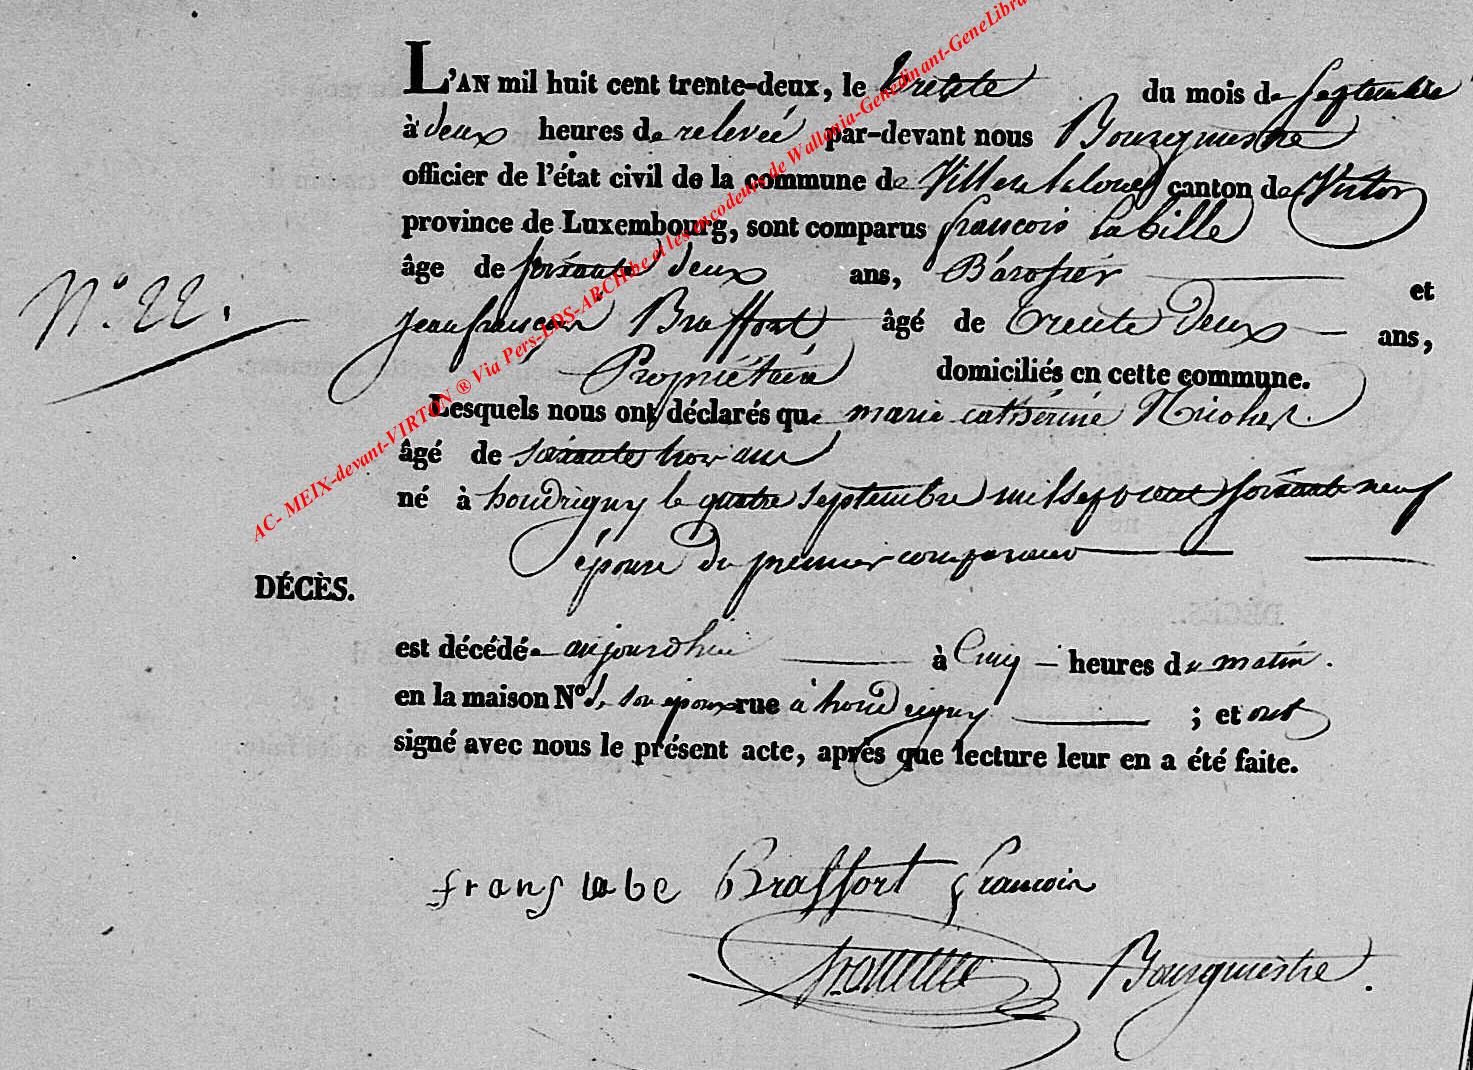 L'AN mil huit cent trente-deux, le trente du mois de septembre
à deux heures de relevée par-devant nous Bourgmestre
officier de l'état civil de la commune de Villers la loue canton de Virton
province de Luxembourg, sont comparus francois Labille
âge de soixante deux ans, et
N.° 22.
jean françois Braffort âgé de trente deux ans,
Propriétaire domiciliés en cette commune.
Lesquels nous ont déclarés que marie catherine
âgé de soixante trois ans
né à houdrigny le quatre septembre mil sept cent soixante neuf
épouse du premier comparant
DÉCÈS.
est décédé aujourdhui à Cinq heures du matin.
en la maison N° de son époux rue à houdrigny ; et ont
signé avec nous le présent acte, après que lecture leur en a été faite.
Braffort francois
Bourgmestre.
AC- MEIX-devant-VIRTON ® Via Pers-LDS-ARCH.be et les encodeurs de Wallonia-Genedinant-GeneLibra